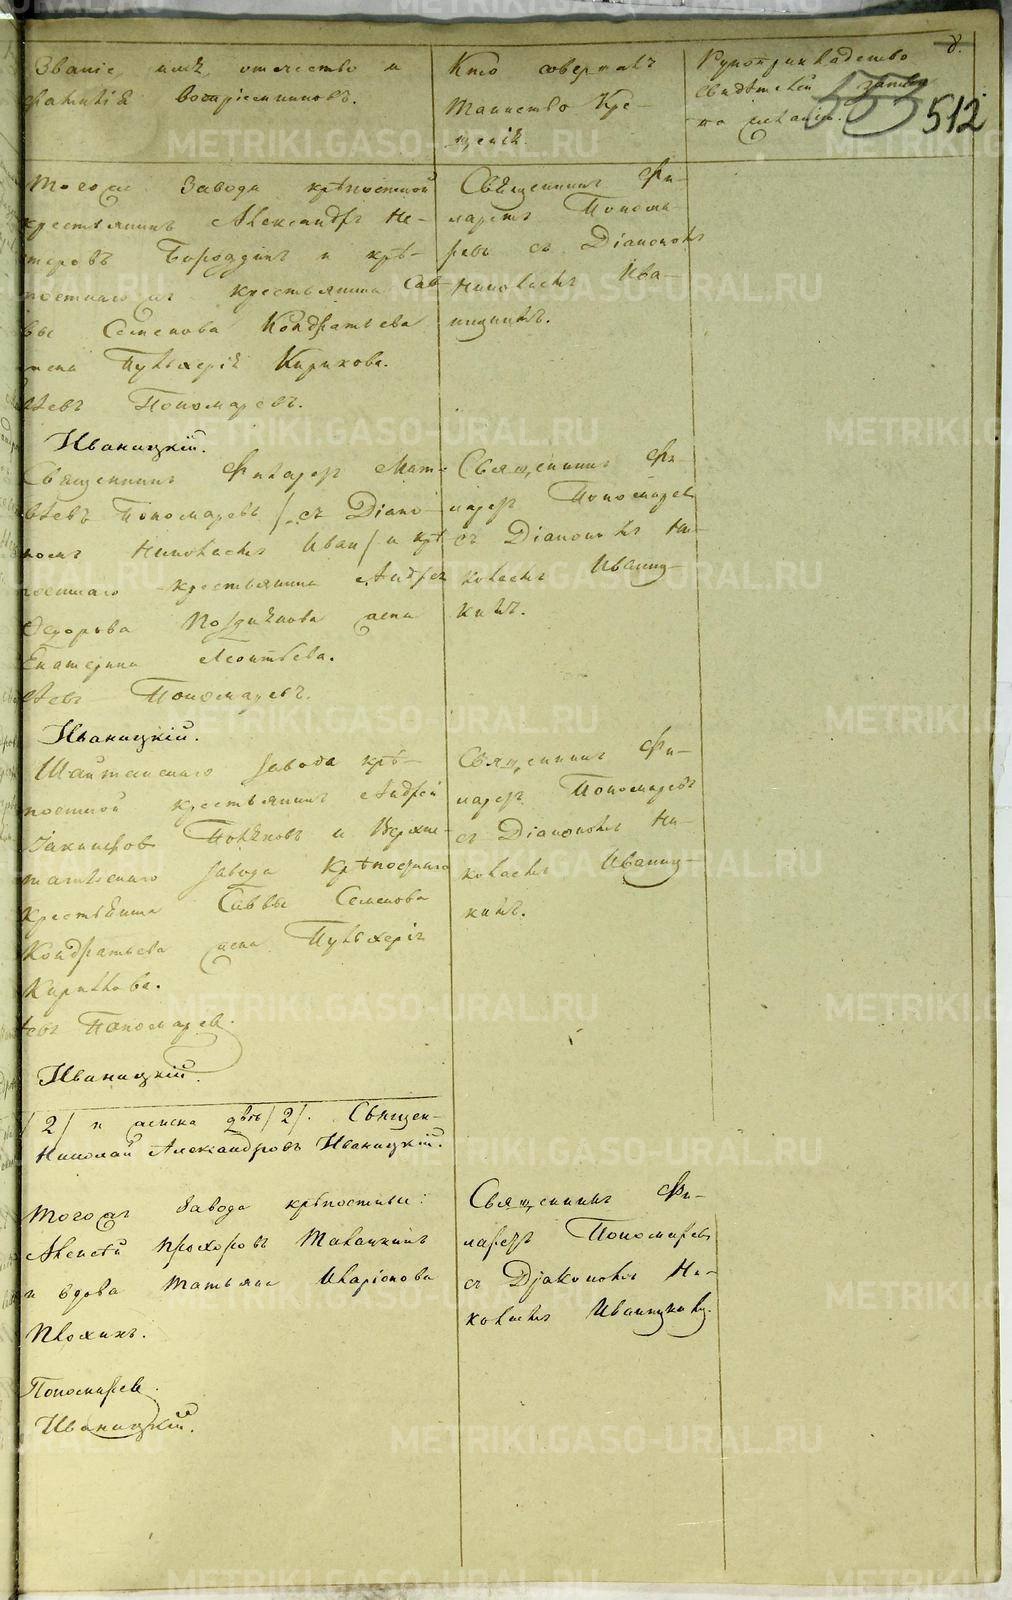 Званіе, имя, отчество и
фамилія воспріемниковъ.
Кто совершалъ
таинство кре-
щенія.
Рукоприкладство
свидѣтелей записи
по желанію.
8.
553
512
Тогоже завода крѣпостной
крестьянинъ Александръ Не-
стеровъ Бородинъ и крѣ-
постнаго же крестьянина Сав-
вы Семенова Кондратьева
жена Пульхерія Кирикова.
ѣевъ Пономаревъ.
Иваницкій.
Священникъ Фи-
ларетъ Понома-
ревъ съ Діакономъ
Николаемъ Ива-
ницкимъ.
Священникъ Филаретъ Мат-
вѣевъ Пономаревъ / съ Діако-
номъ Николаемъ Иван / и крѣ
постнаго крестьянина Андрея
Федорова Позднякова жена
Екатерина Леонтьева.
ѣевъ Пономаревъ.
Иваницкій.
Священникъ Фи-
ларетъ Пономарев
съ Діакономъ Ни-
колаемъ Иваниц-
кимъ.
Шайтанскаго завода крѣ-
постной крестьянинъ Андрей
Иакинфовъ Поляковъ и Верхне-
тагильскаго завода крѣпостнаго
крестьянина Саввы Семенова
Кондратьева жена Пульхерія
Кирикова.
ѣевъ Пономарев.
Иваницкій.
Священникъ Фи-
ларетъ Пономаревъ
съ Діакономъ Ни-
колаемъ Иваниц-
кимъ.
/2/ и женска двѣ /2/. Священ-
Николай Александровъ Иваницкій.
Тогоже завода крѣпостныи:
Алексѣй Прохоровъ Талацкинъ
и вдова Татьяна Иларіонова
Плохихъ.
Пономарев.
Иваницкій.
Священникъ Фи-
ларетъ Пономаревъ
съ Діакономъ Ни-
колаемъ Иваницкимъ.
METRIKI.GASO-URAL.RU